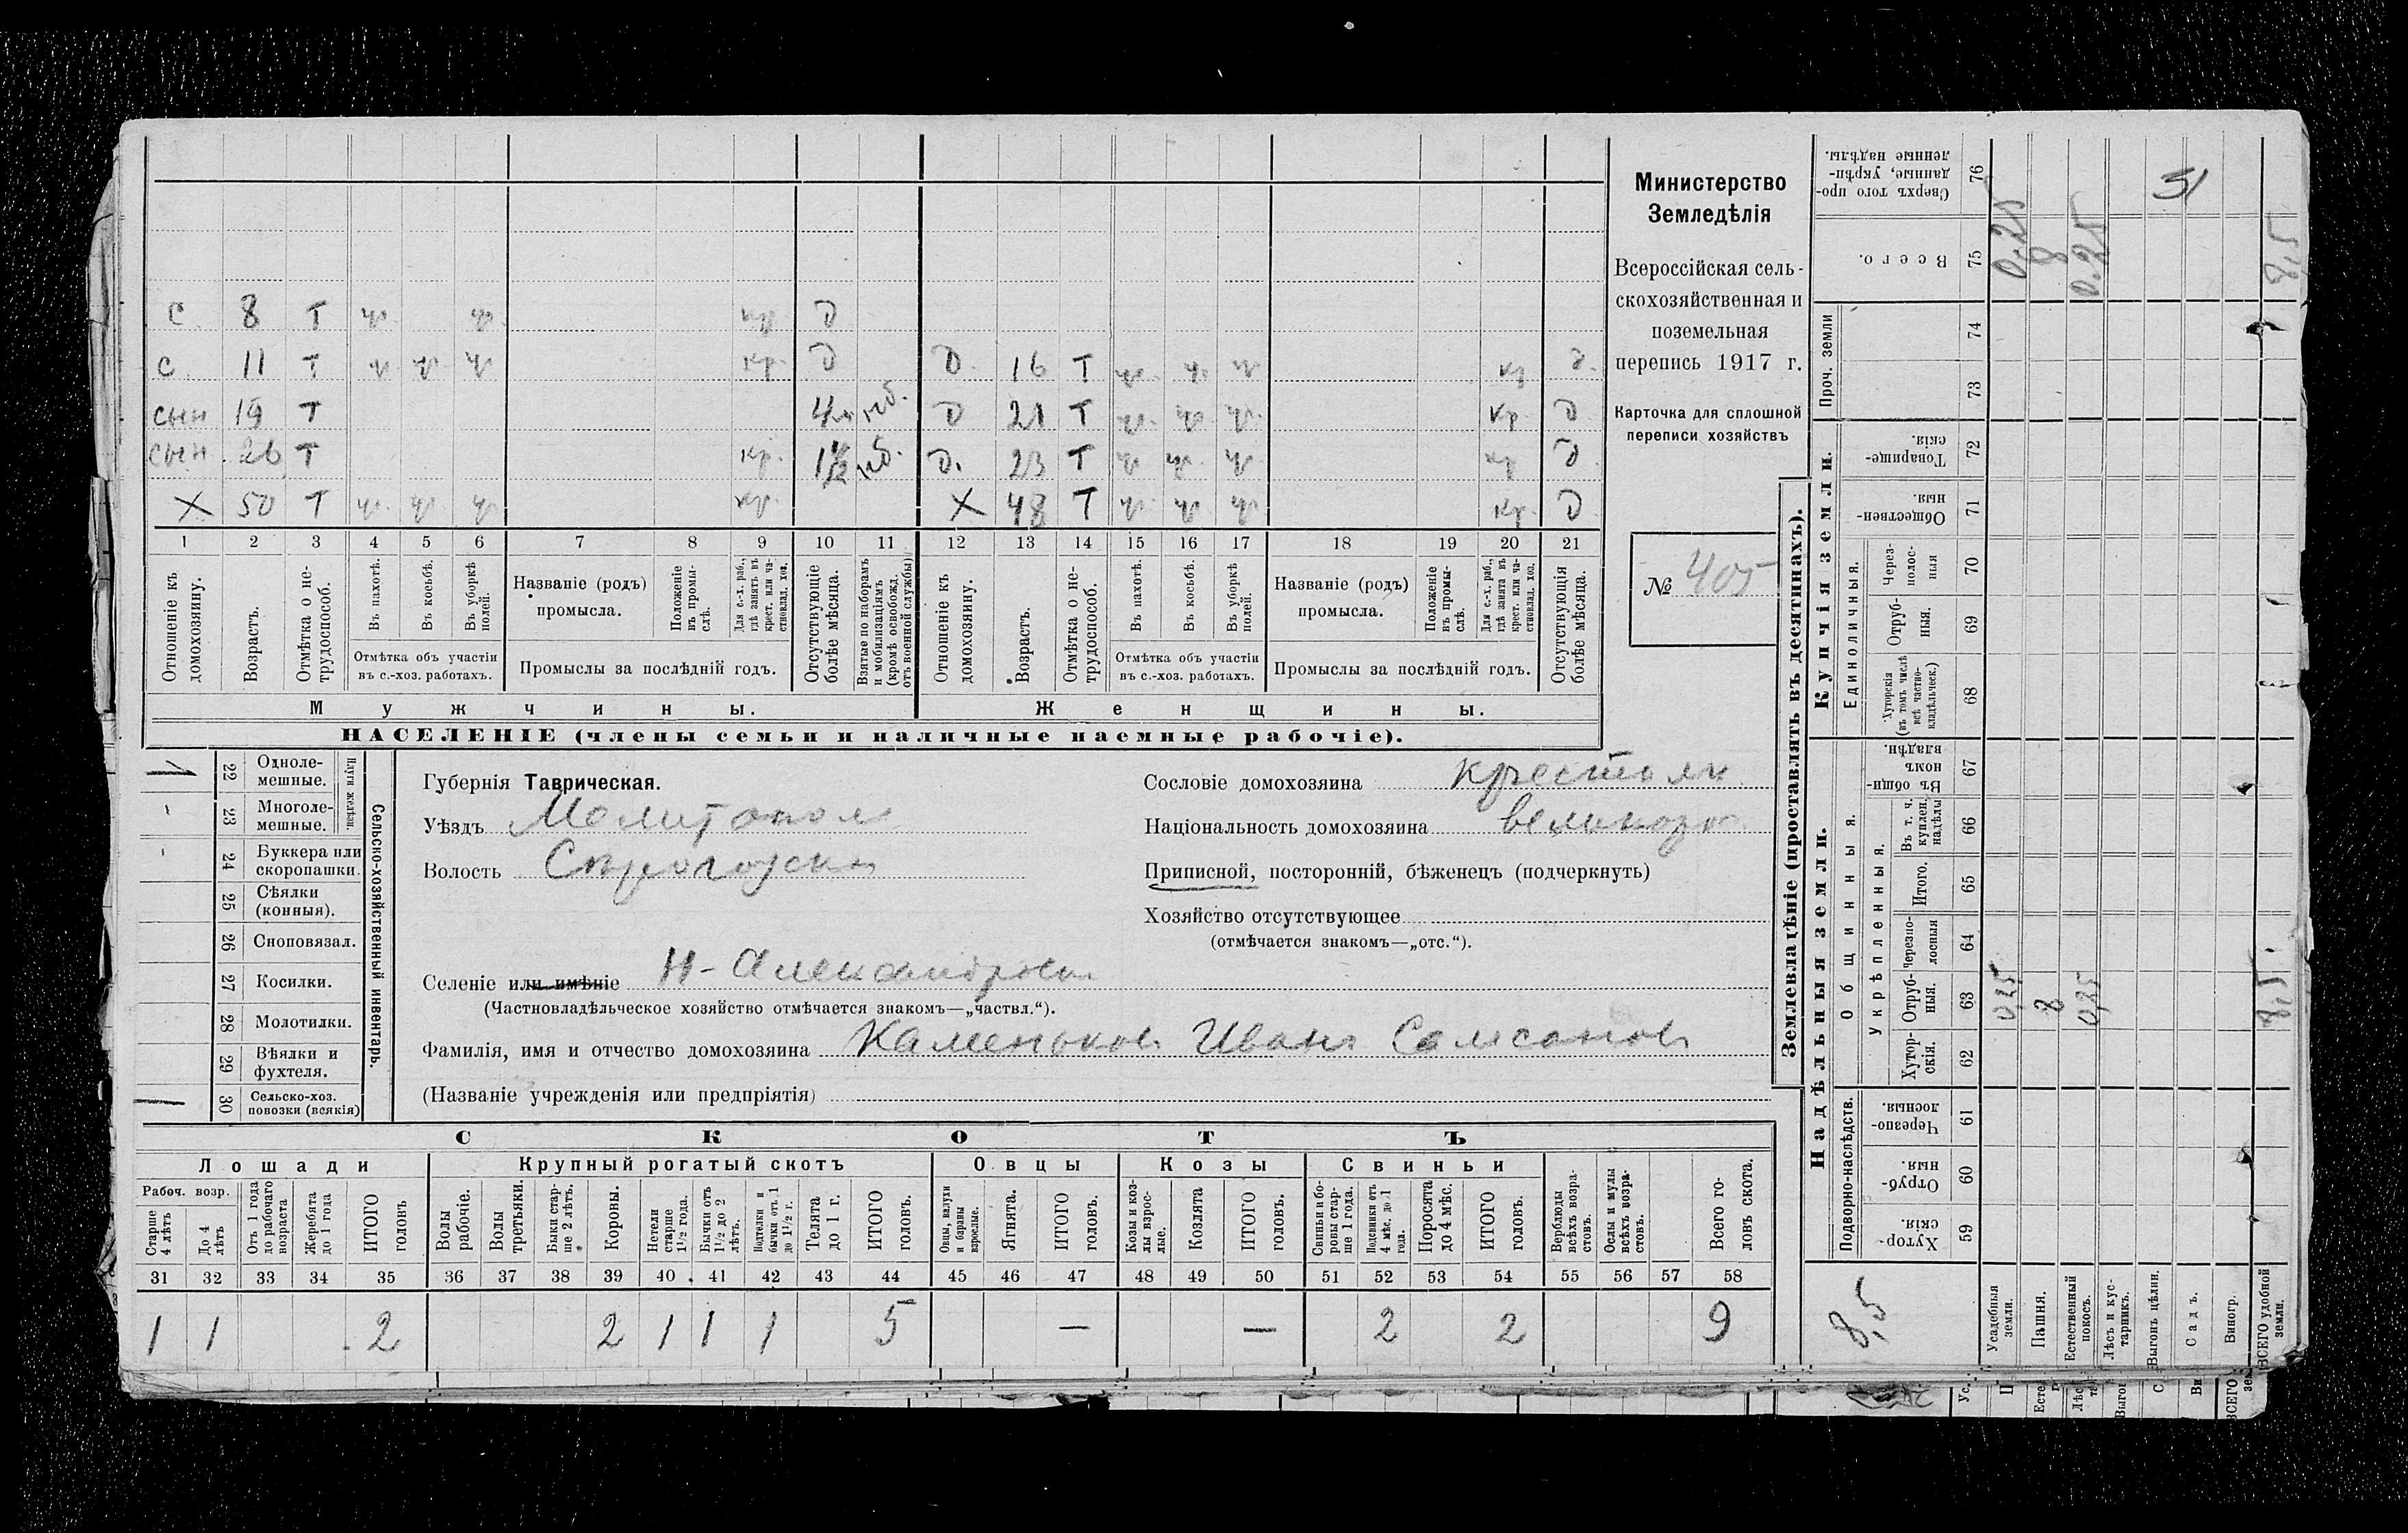 с 8 Т ч. ч. кр. д
с 11 Т ч. ч. ч. кр. д д. 16 Т ч. ч. ч. кр. д.
сын 19 Т 4м мб. д 21 Т ч. ч. ч. кр. д
сын 26 Т кр. мб. д. 23 Т ч. ч. ч. кр. д
X 50 Т ч. ч. ч. кр. X 48 Т ч. ч. ч. кр. д
1 2 3 4 5 6 7 8 9 10 11 12 13 14 15 16 17 18 19 20 21
Отношеніе къ домохозяину.
Возрастъ.
Отмѣтка о не-
трудоспособ.
Въ пахотѣ.
Въ косьбѣ.
Въ уборкѣ полей.
Отмѣтка объ участіи
въ с.-хоз. работахъ.
Названіе (родъ)
промысла.
Положеніе въ промы-
слѣ.
Для с.-х. раб.,
гдѣ занятъ въ
крест. или ча-
стновлад. хоз.
Промыслы за послѣдній годъ.
Отсутствующіе
болѣе мѣсяца.
Взятые по наборамъ
и мобилизаціямъ
(кромѣ освобожд.
отъ военной службы)
Отношеніе къ
домохозяину.
Возрастъ.
Отмѣтка о не-
трудоспособ.
Въ пахотѣ.
Въ косьбѣ.
Въ уборкѣ
полей.
Отмѣтка объ участіи
въ с.-хоз. работахъ.
Названіе (родъ)
промысла.
Положеніе
въ промы-
слѣ.
Для с.-х. раб.,
гдѣ занята въ
крест. или ча-
стновлад. хоз.
Промыслы за послѣдній годъ.
Отсутствующія
болѣе мѣсяца.
Мужчины.
Женщины.
НАСЕЛЕНІЕ (члены семьи и наличные наемные рабочіе).
Министерство
Земледѣлія
Всероссійская сель-
скохозяйственная и
поземельная
перепись 1917 г.
Карточка для сплошной
переписи хозяйствъ
№ 405
22 Одноле-
мешные.
23 Многоле-
мешные.
Плуги желѣзн.
24 Буккера или
скоропашки.
25 Сѣялки
(конныя).
26 Сноповязал.
27 Косилки.
28 Молотилки.
29 Вѣялки и
фухтеля.
30 Сельско-хоз.
повозки (всякія)
Сельско-хозяйственный инвентарь.
Губернія Таврическая.
Уѣздъ Мелитопол
Волость Сѣрогозск
Селеніе или имѣніе Н-Александровка
(Частновладѣльческое хозяйство отмѣчается знакомъ—„частвл.“).
Фамилія, имя и отчество домохозяина Каменьков Иванъ Самсонов
(Названіе учрежденія или предпріятія)
Сословіе домохозяина Крестьян.
Національность домохозяина великорос
Приписной, посторонній, бѣженецъ (подчеркнуть)
Хозяйство отсутствующее
(отмѣчается знакомъ—„отс.“).
СКОТЪ
Лошади Крупный рогатый скотъ Овцы Козы Свиньи
Рабоч. возр.
Старше
4 лѣтъ
До 4
лѣтъ
Отъ 1 года
до рабочаго
возраста
Жеребята
до 1 года
ИТОГО
головъ
Волы
рабочіе.
Волы
третьяки.
Быки стар-
ше 2 лѣтъ.
Коровы.
Нетели
старше
1½ года.
Бычки отъ
1½ до 2
лѣтъ.
Подтелки и
бычки отъ 1
до 1½ г.
Телята
до 1 г.
ИТОГО
головъ.
Овцы, валухи
и бараны
взрослые.
Ягнята.
ИТОГО
головъ.
Козы и коз-
лы взрос-
лые.
Козлята
ИТОГО
головъ.
Свиньи и бо-
ровы стар-
ше 1 года.
Подсвинки отъ
4 мѣс. до 1
года.
Поросята
до 4 мѣс.
ИТОГО
головъ.
Верблюды
всѣхъ возра-
стовъ.
Ослы и мулы
всѣхъ возра-
стовъ.
Всего го-
ловъ скота.
31 32 33 34 35 36 37 38 39 40 41 42 43 44 45 46 47 48 49 50 51 52 53 54 55 56 57 58
1 1 2 2 1 1 1 5 — — 2 2 9
Землевладѣніе (проставлять въ десятинахъ).
Надѣльныя земли.
Купчія земли.
Проч. земли
Подворно-наслѣдств.
Общинныя.
Укрѣпленныя.
Единоличныя.
Хутор-
скія. 59
Отруб-
ныя. 60
Черезпо-
лосныя. 61
Хутор-
скія. 62
Отруб-
ныя. 63
Черезпо-
лосныя 64
Итого. 65
Въ т. ч.
куплен.
надѣлы 66
Въ общин-
номъ
владѣн. 67
Хуторскія
(въ томъ числѣ
всѣ частно-
владѣльческ.) 68
Отруб-
ныя. 69
Через-
полос-
ныя 70
Обществен-
ныя. 71
Товарище-
скія. 72
73
74
Всего. 75
Сверхъ того про-
данные, укрѣп-
ленные надѣлы. 76
Усадебныя
земли. 0,25 0,25
Пашня. 8 8
Естественный
покосъ. 0,25 0,25
Лѣсъ и кус-
тарникъ.
Выгонъ цѣлин.
Садъ.
Виногр.
ВСЕГО удобной
земли. 8,5 8,5
51
8,5